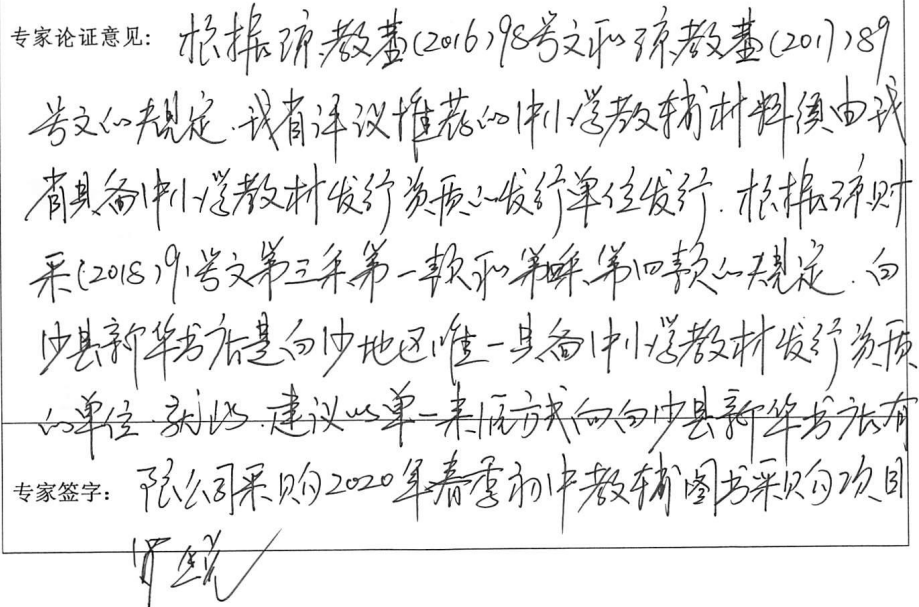 专家论证意见: 根据琼教基(2016)98号文和琼教基(2017)89
号文的规定.我省评议推荐的中小学教辅材料须由我
省具备中小学教材发行资质的发行单位发行.根据琼财
采(2018)91号文第三条第一款和第四条第四款的规定.白
沙县新华书店是白沙地区唯一具备中小学教材发行资质
的单位.鉴此.建议以单一来源方式向白沙县新华书店有
专家签字: 限公司采购2020年春季初中教辅图书采购项目